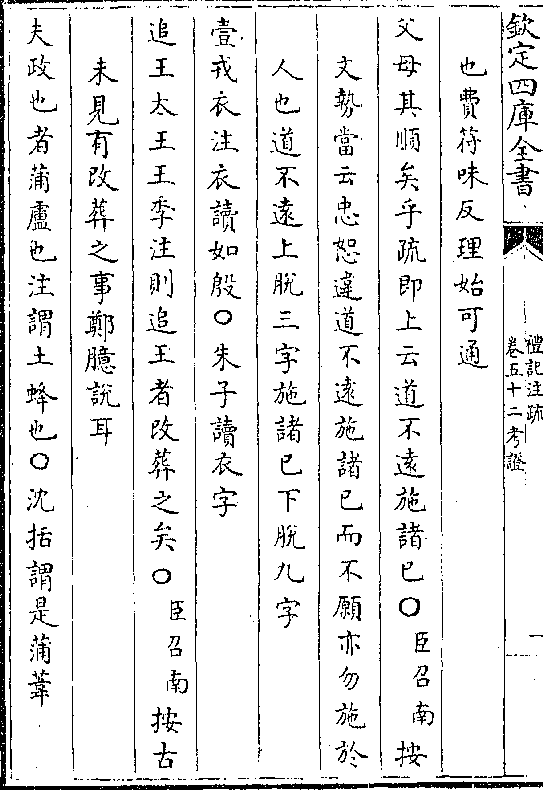 欽定四庫全書
禮記注疏
卷五十二考證
一
也費符味反理始可通
父母其順矣乎疏即上云道不遠施諸已○臣召南按
文勢當云忠恕違道不遠施諸已而不願亦勿施於
人也道不遠上脫三字施諸已下脫九字
壹戎衣注衣讀如殷○朱子讀衣字
追王太王王季注則追王者改葬之矣○臣召南按古
未見有改葬之事鄭臆說耳
夫政也者蒲盧也注謂土蜂也○沈括謂是蒲葦